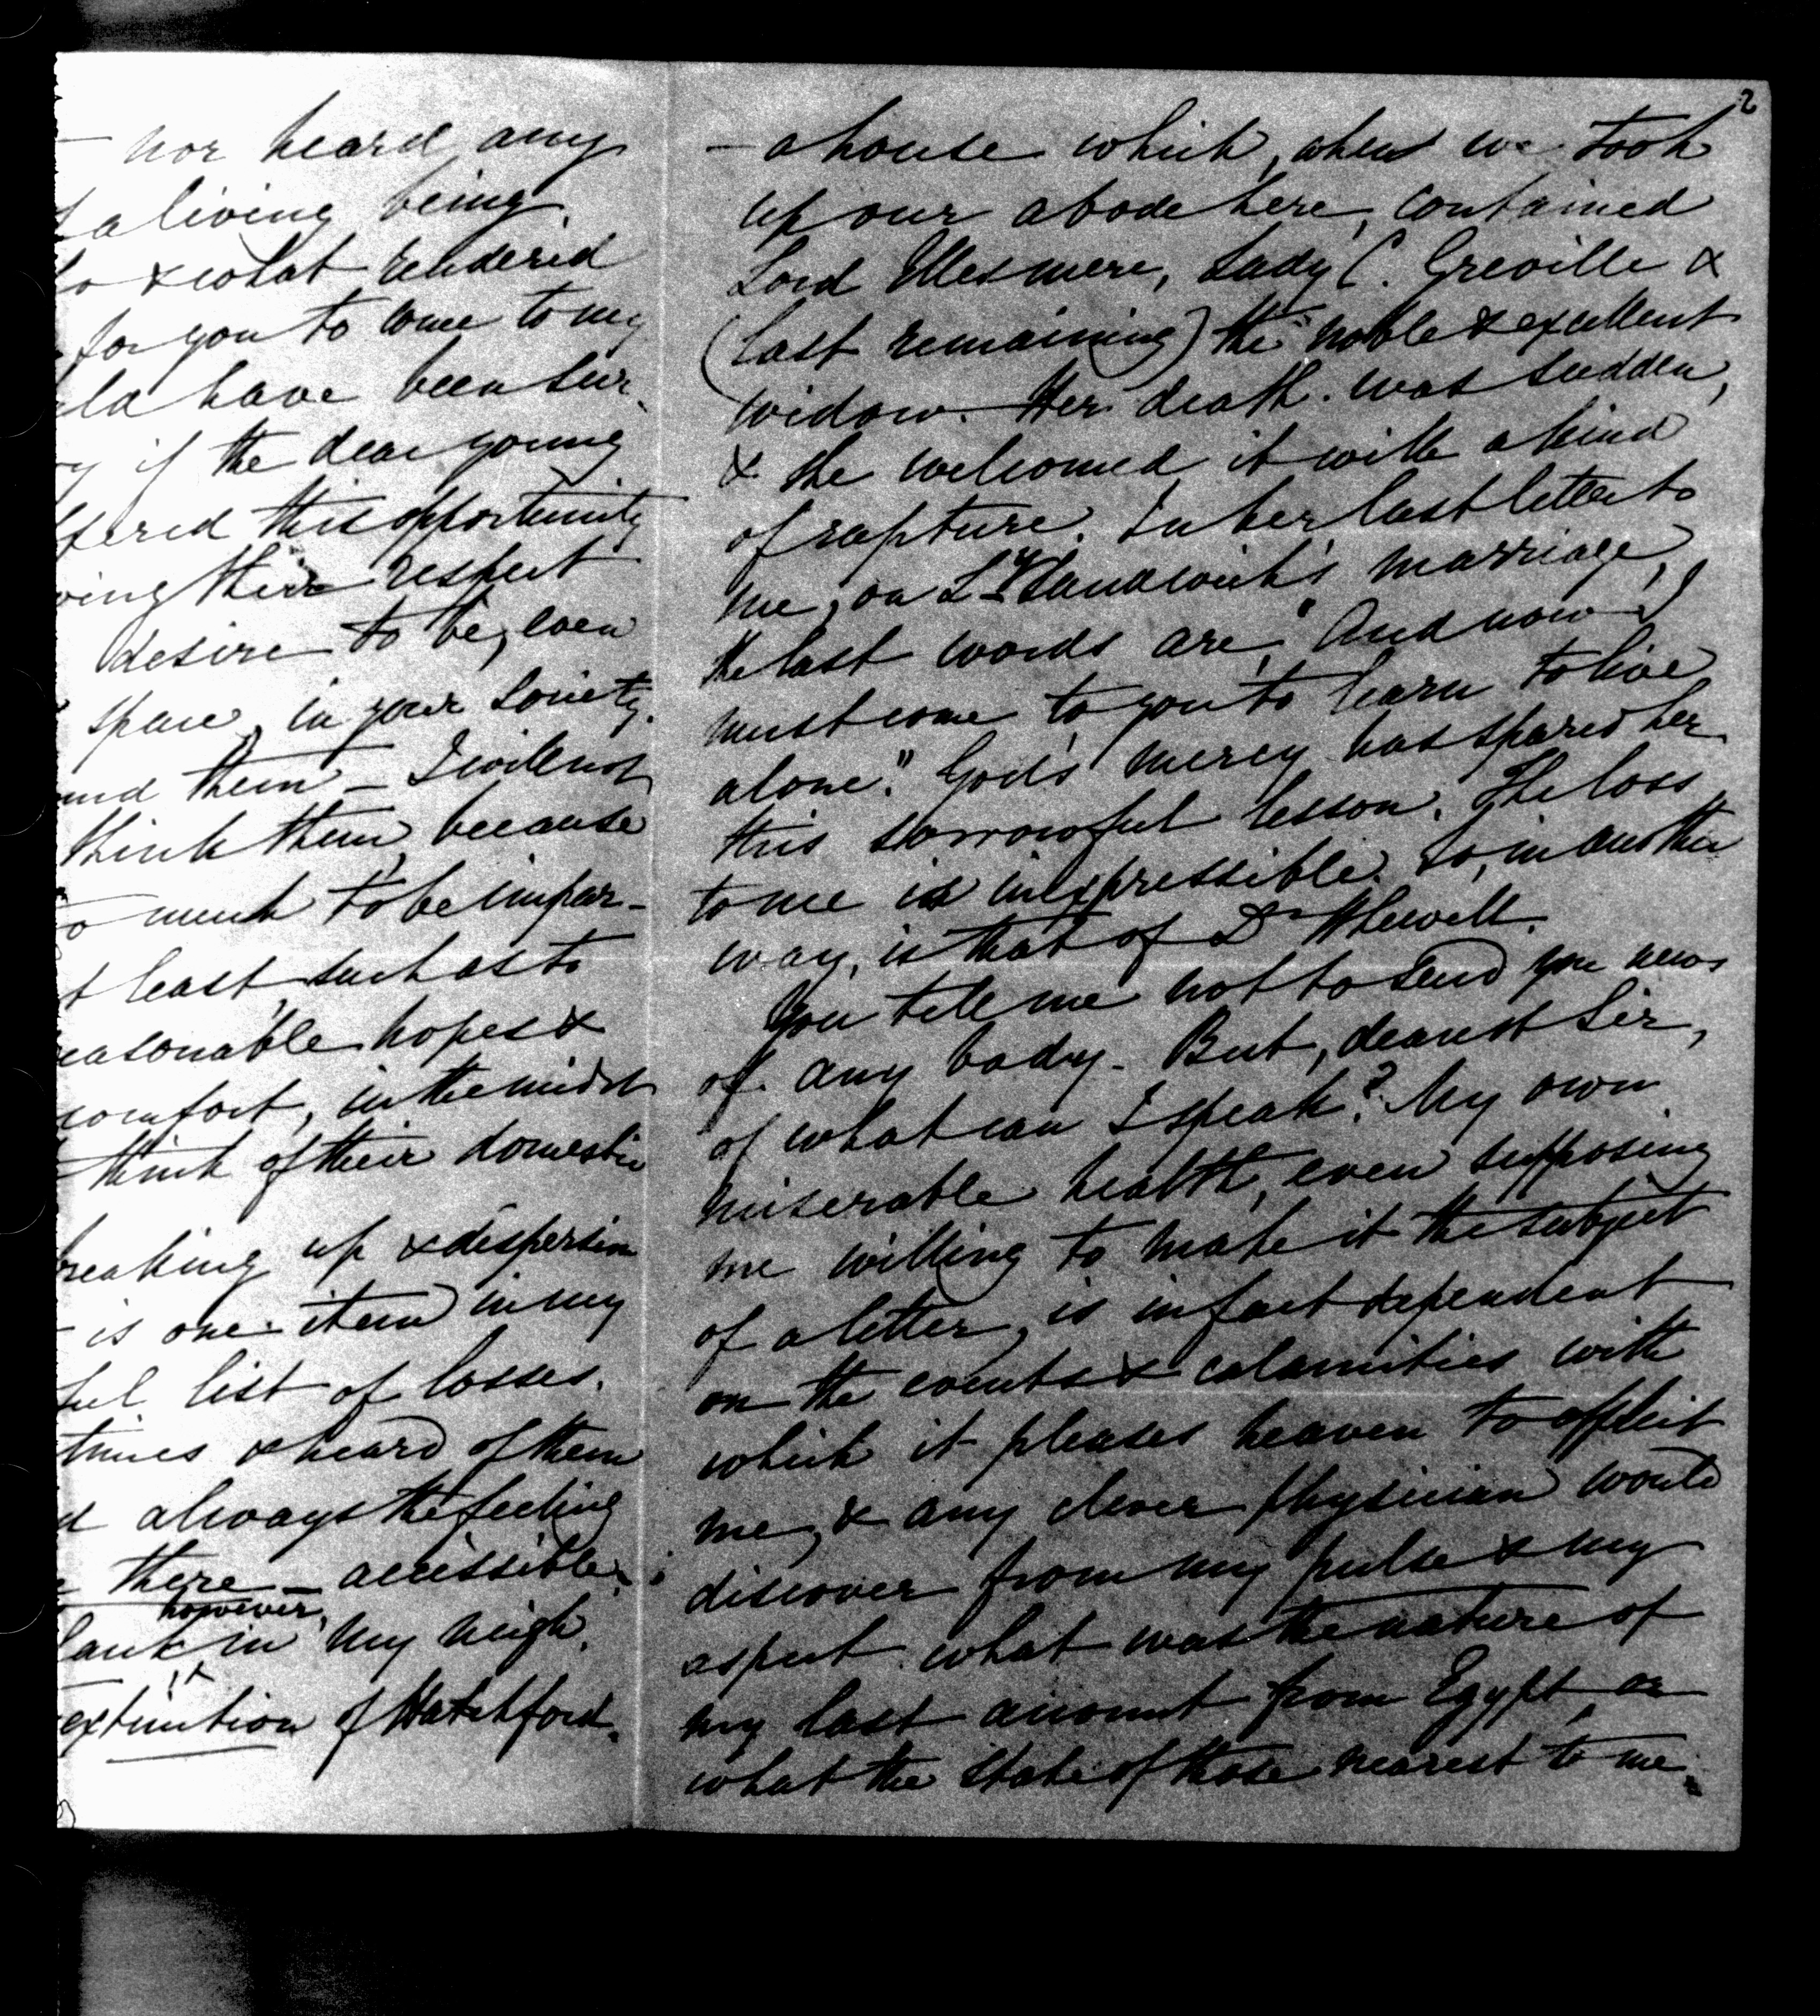 nor heard any
a living being.
& what rendered
for you to come to my
have been sur-
if the dear young
this opportunity
their respect
desire to be, even
space, in your society.
them — I will not
think them, because
much to be impar-
least such as to
hopes &
comfort, in the midst
think of their domestic
up & dispersion
is one item in my
list of losses.
& heard of them
always the feeling
there — accessible;
however,
in my neigh.
extinction of Hatchford.
2
— a house which, when we took
up our abode here, contained
Lord Ellesmere, Lady C. Greville &
(last remaining) the noble & excellent
widow. Her death was sudden,
& she welcomed it with a kind
of rapture. In her last letter to
me, on Ly Sandwich's marriage,
the last words are, "And now I
must come to you to learn to live
alone." God's mercy has spared her
this sorrowful lesson. The loss
to me is inexpressible. So, in another
way, is that of Dr Whewell.
You tell me not to send you news
of any body. But, dearest Sir,
of what can I speak? My own
miserable health, even supposing
me willing to make it the subject
of a letter, is in fact dependent
on the events & calamities with
which it pleases heaven to afflict
me, & any clever physician would
discover from my pulse & my
aspect what was the nature of
my last account from Egypt, or
what the state of those nearest to me.